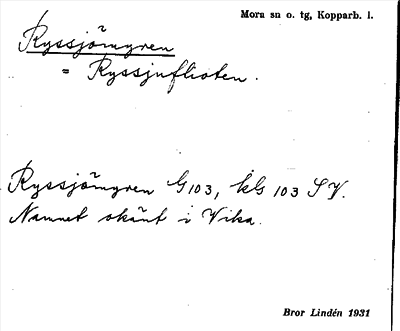 Mora sn o. tg, Kopparb. l.
Ryssjömyren
= Ryssjuflioten.
Ryssjömyren G 103, kG 103 SV.
Namnet okänt i Vika.
Bror Lindén 1931